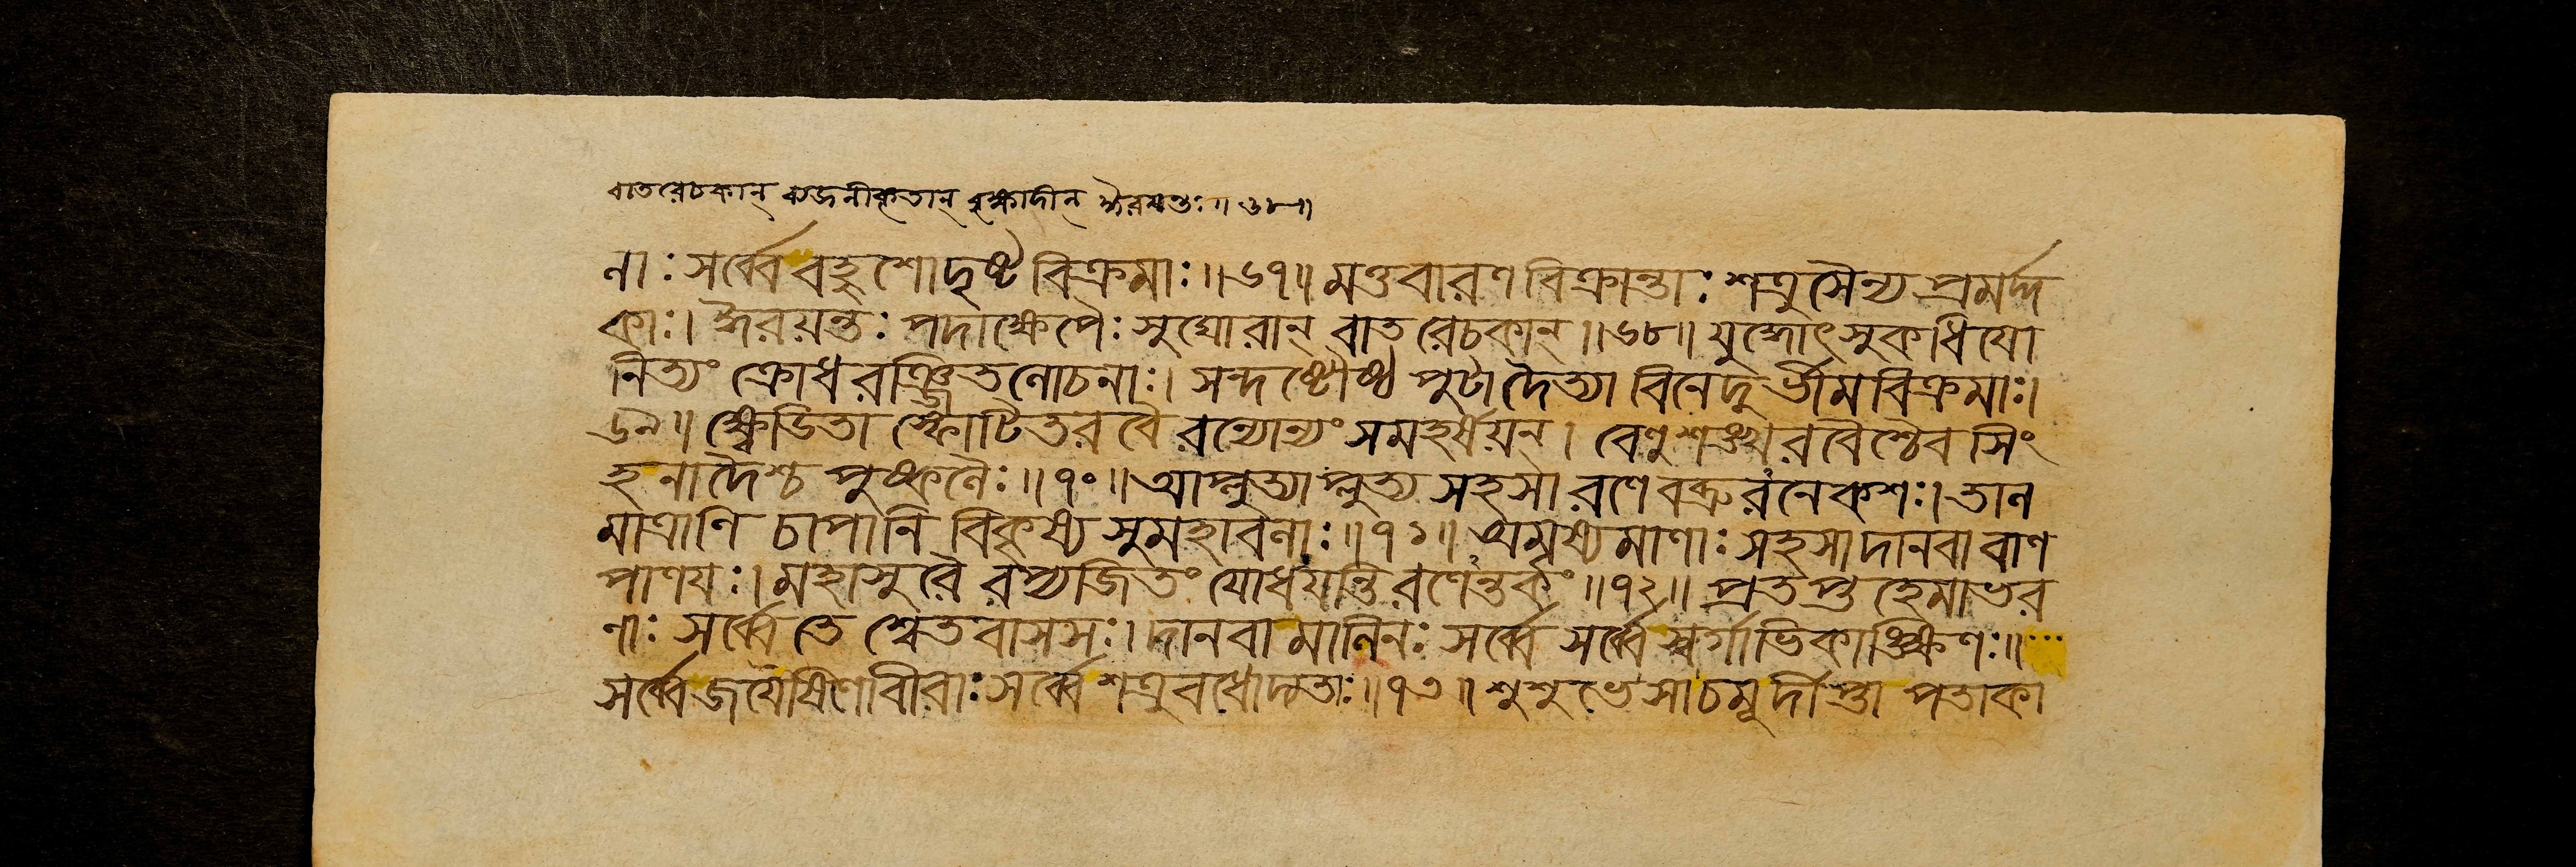 বাতরেচকান্ ব্যজনীকৃতান্ বৃক্ষাদীন্ ঈরয়ন্তঃ॥৬৮॥
নাঃ সর্ব্বে বহুশো দৃষ্ট বিক্রমাঃ॥৬৭॥ মত্তবারণ বিক্রান্তাঃ শত্রুসৈন্য প্রমর্দ্দ
কাঃ। ঈরয়ন্তঃ পদাক্ষেপৈঃ সুঘোরান্ বাত রেচকান্॥৬৮॥ যুদ্ধোৎসুকধিযো
নিত্যং ক্রোধ রঞ্জিতলোচনাঃ। সন্দষ্টৌষ্ঠ পুটা দৈত্যা বিনেদু র্ভীমবিক্রমাঃ।
৬৯॥ ক্ষ্বেডিতা স্ফোটিতরবৈ রন্যোন্যং সমহর্ষয়ন্। বেণুশঙ্খরবৈশ্চৈব সিং
হনাদৈশ্চ পুষ্কলৈঃ॥৭০॥ আপ্লুত্যাপ্লুত্য সহসা রণে বভ্রুরনেকশঃ। তাল
মাত্রাণি চাপানি বিকৃষ্য সুমহাবলাঃ॥৭১॥ অমৃষ্যমাণাঃ সহসা দানবা বাণ
পাণযঃ। মহাসুরৈ রপ্যজিতং যোধয়ন্তি রণেন্তকং॥৭২॥ প্রতপ্ত হেমাভর
ণাঃ সর্ব্বে তে শ্বেতবাসসঃ। দানবা মানিনঃ সর্ব্বে সর্ব্বে স্বর্গাভিকাঙ্ক্ষিণঃ॥
সর্ব্বে জযৈষিণো বীরাঃ সর্ব্বে শত্রুবধোদ্যতাঃ॥৭৩॥ শুশুভে সা চমূর্দীপ্তা পতাকা